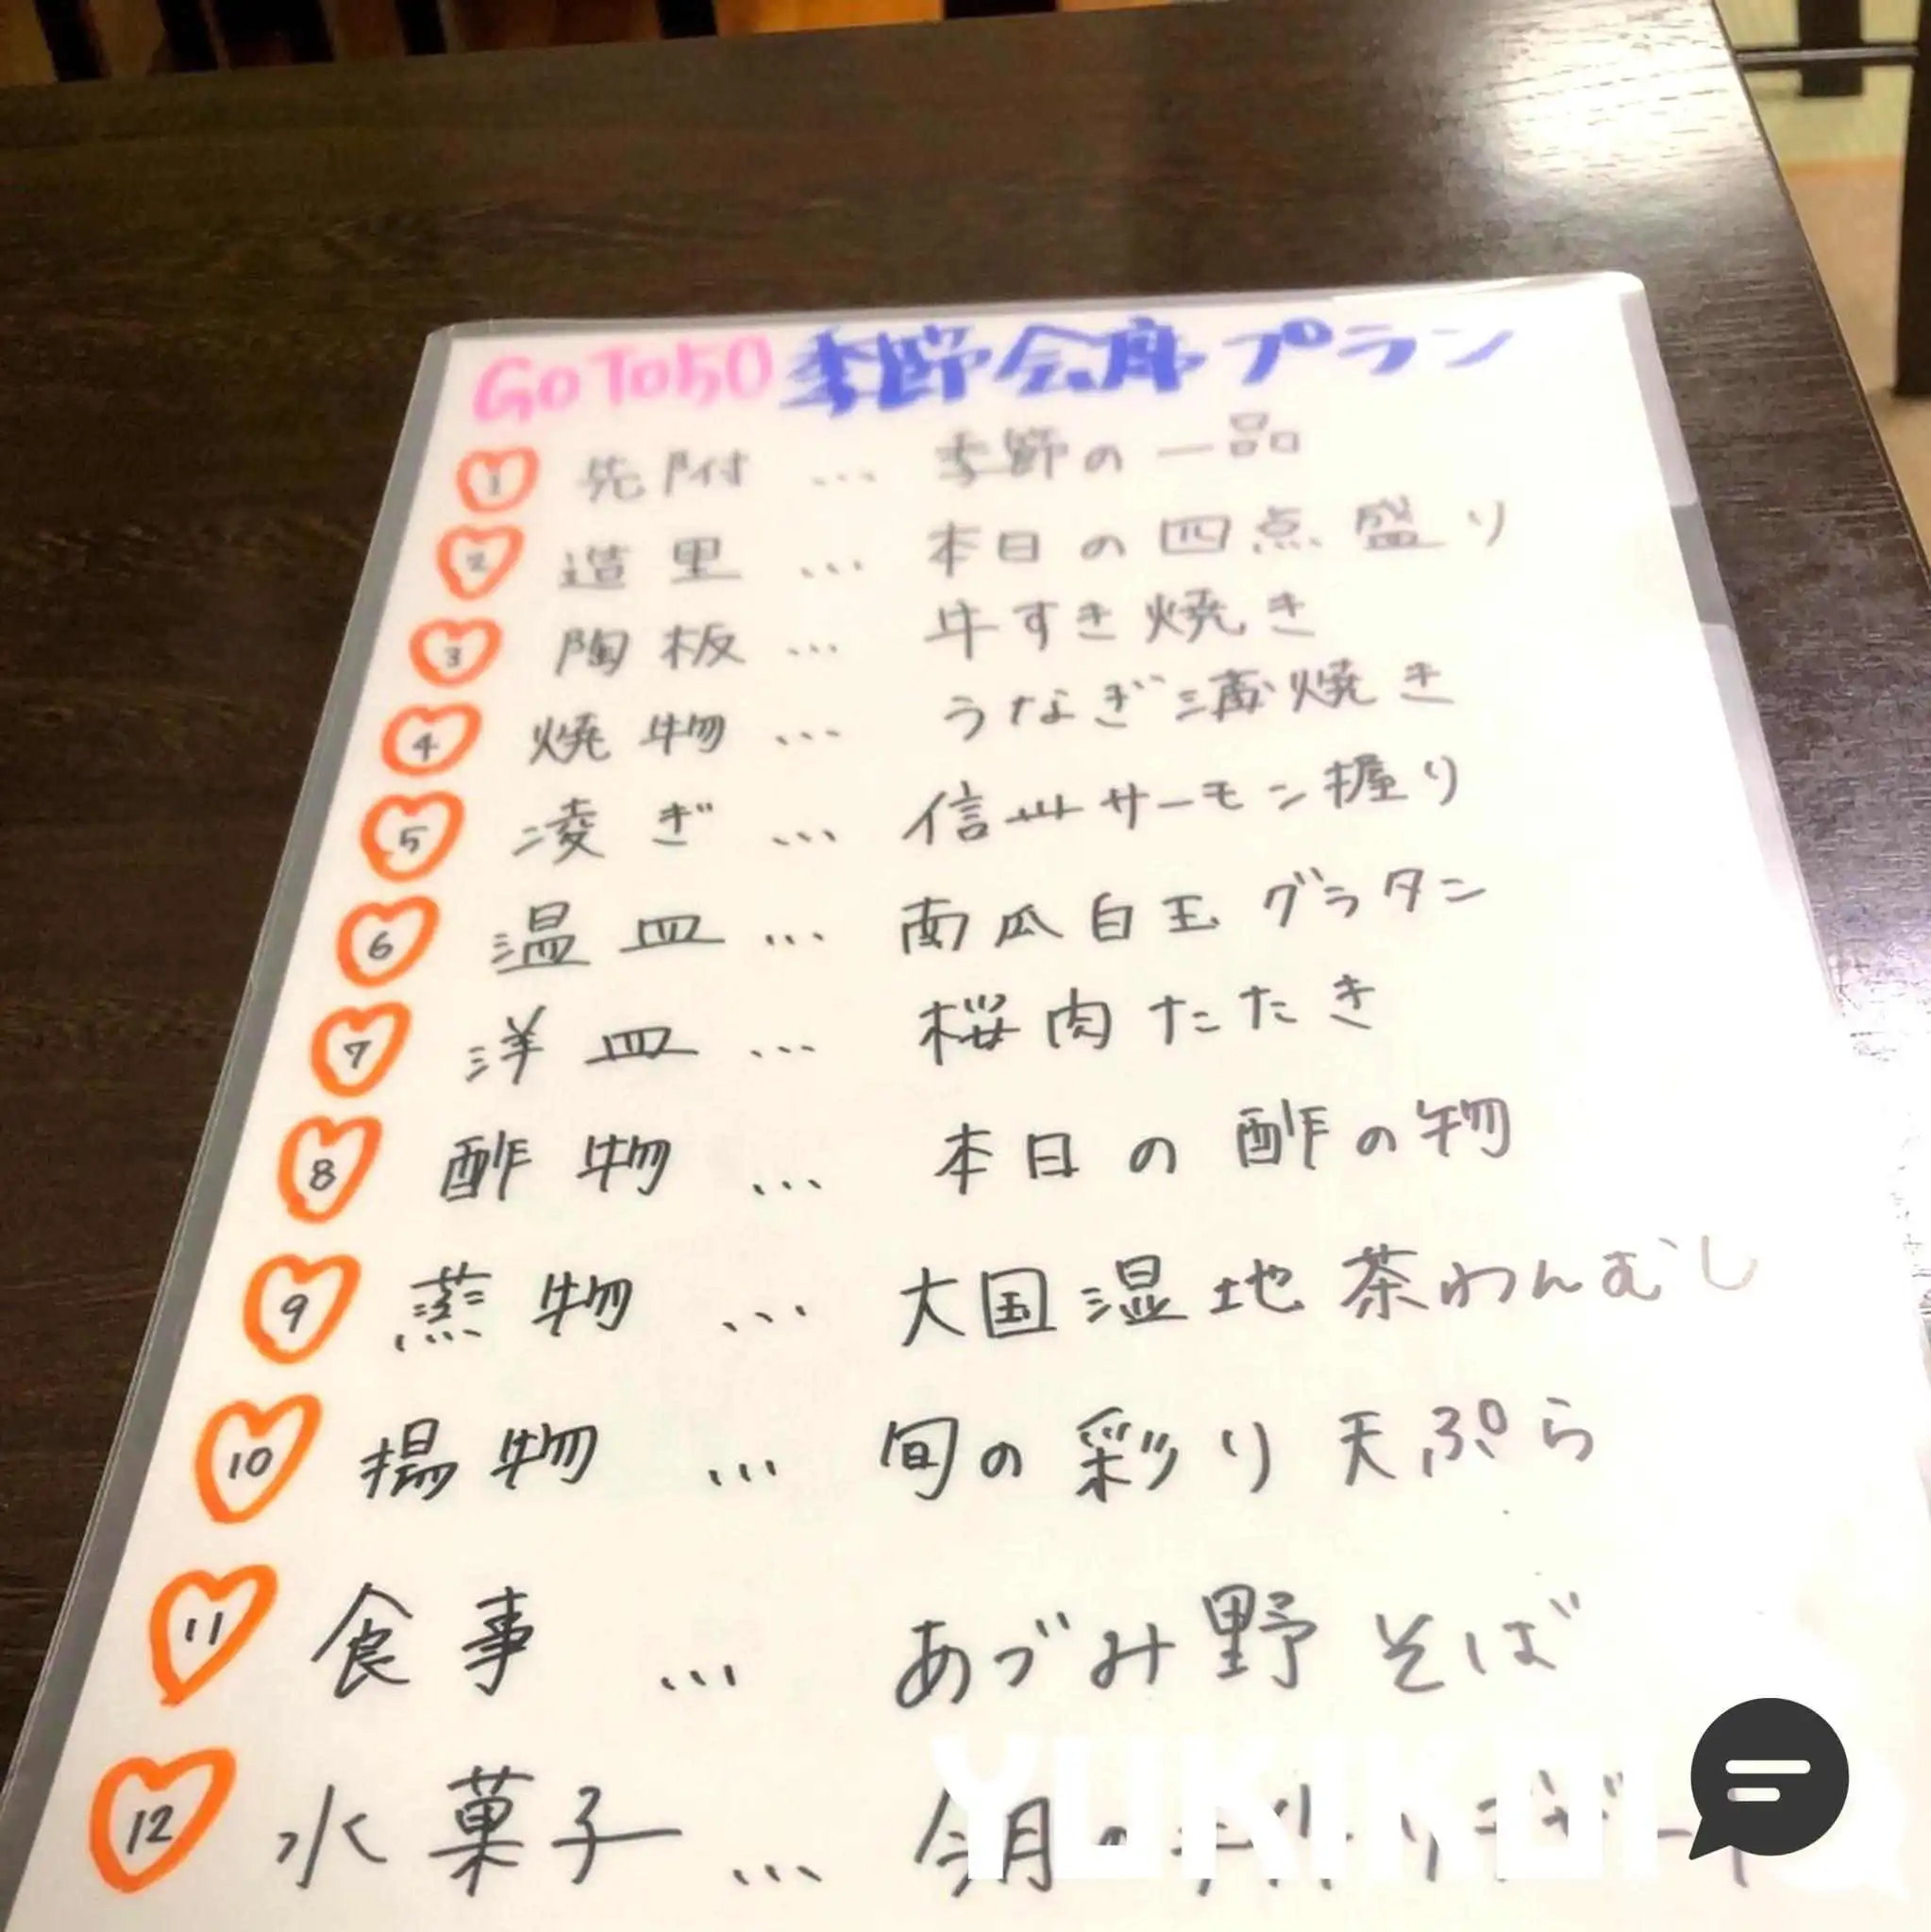 GoTo50 季節会席プラン
1 先附 … 季節の一品
2 造里 … 本日の四点盛り
3 陶板 … 牛すき焼き
4 焼物 … うなぎ蒲焼き
5 凌ぎ … 信州サーモン握り
6 温皿 … 南瓜白玉グラタン
7 洋皿 … 桜肉たたき
8 酢物 … 本日の酢の物
9 蒸物 … 大国湿地茶わんむし
10 揚物 … 旬の彩り天ぷら
11 食事 … あづみ野そば
12 水菓子 … 今月の
YUKIKO